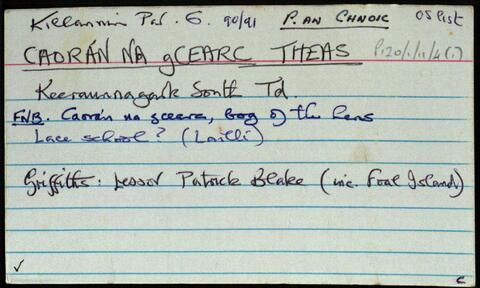 Killannin Par. G. 90/91 P. AN CHNOIC OS list
CAORÁN NA gCEARC THEAS P120/1/11/4(1)
Keeraunnagark South Td.
FNB. Caorán na gcearc, bog of the hens
Lace school? (Lailli)
Griffiths: Lessor Patrick Blake (inc. Foal Island)
✓ c